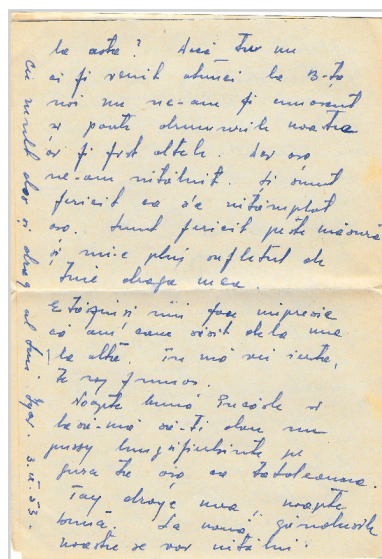 la asta? Dacă tu nu
ai fi venit atunci la B-ța
noi nu ne-am fi cunoscut
și poate drumurile noastre
ar fi fost altele. Dar așa
ne-am întâlnit. Și sunt
fericit că s'a întâmplat
așa. Sunt fericit peste măsură
și mi-e plin sufletul de
tine draga mea.
E târziu și îmi face impresia
că am cam sărit dela una
la alta. Tu mă vei ierta,
te rog frumos.
Noapte bună și
lasă-mă să-ți dau un
pe
gura ta așa ca totdeauna.
draga mea, noapte
bună. La nouă, gândurile
noastre se vor întâlni.
Cu mult dor și drag al tău 3.IX.53.